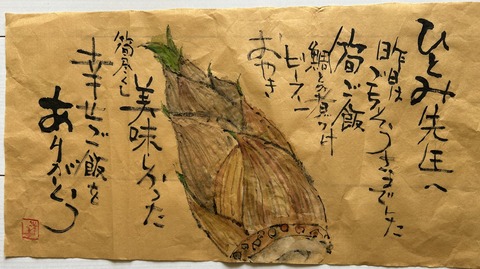 ひとみ先生へ
昨日は
ごちそうさまでした
筍ご飯
鯛のあらだき
ピース
おやき
美味しかった
幸せご飯を
ありがとう